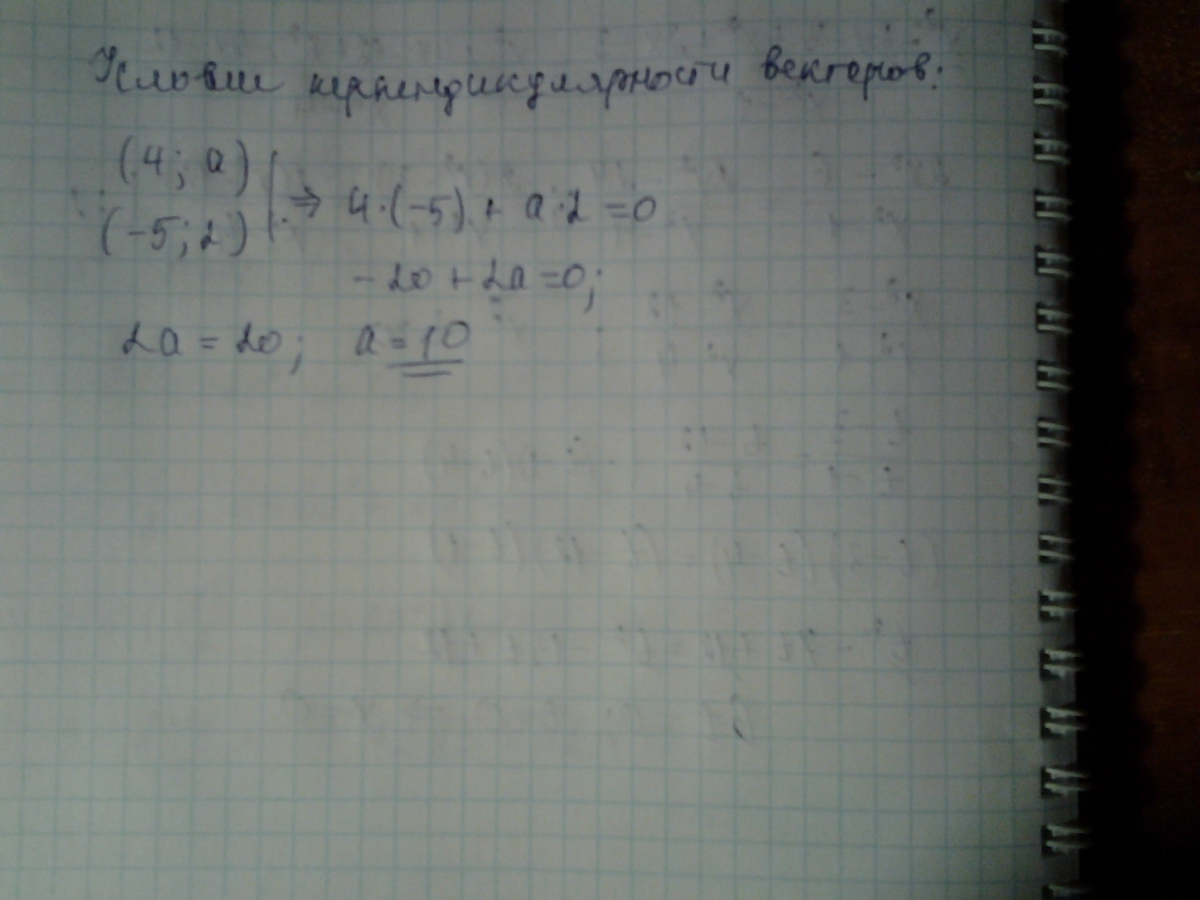 Условие перпендикулярности векторов:
(4; a)
(-5; 2) | ⇒ 4·(-5) + a·2 = 0
-20 + 2a = 0;
2a = 20; a = 10